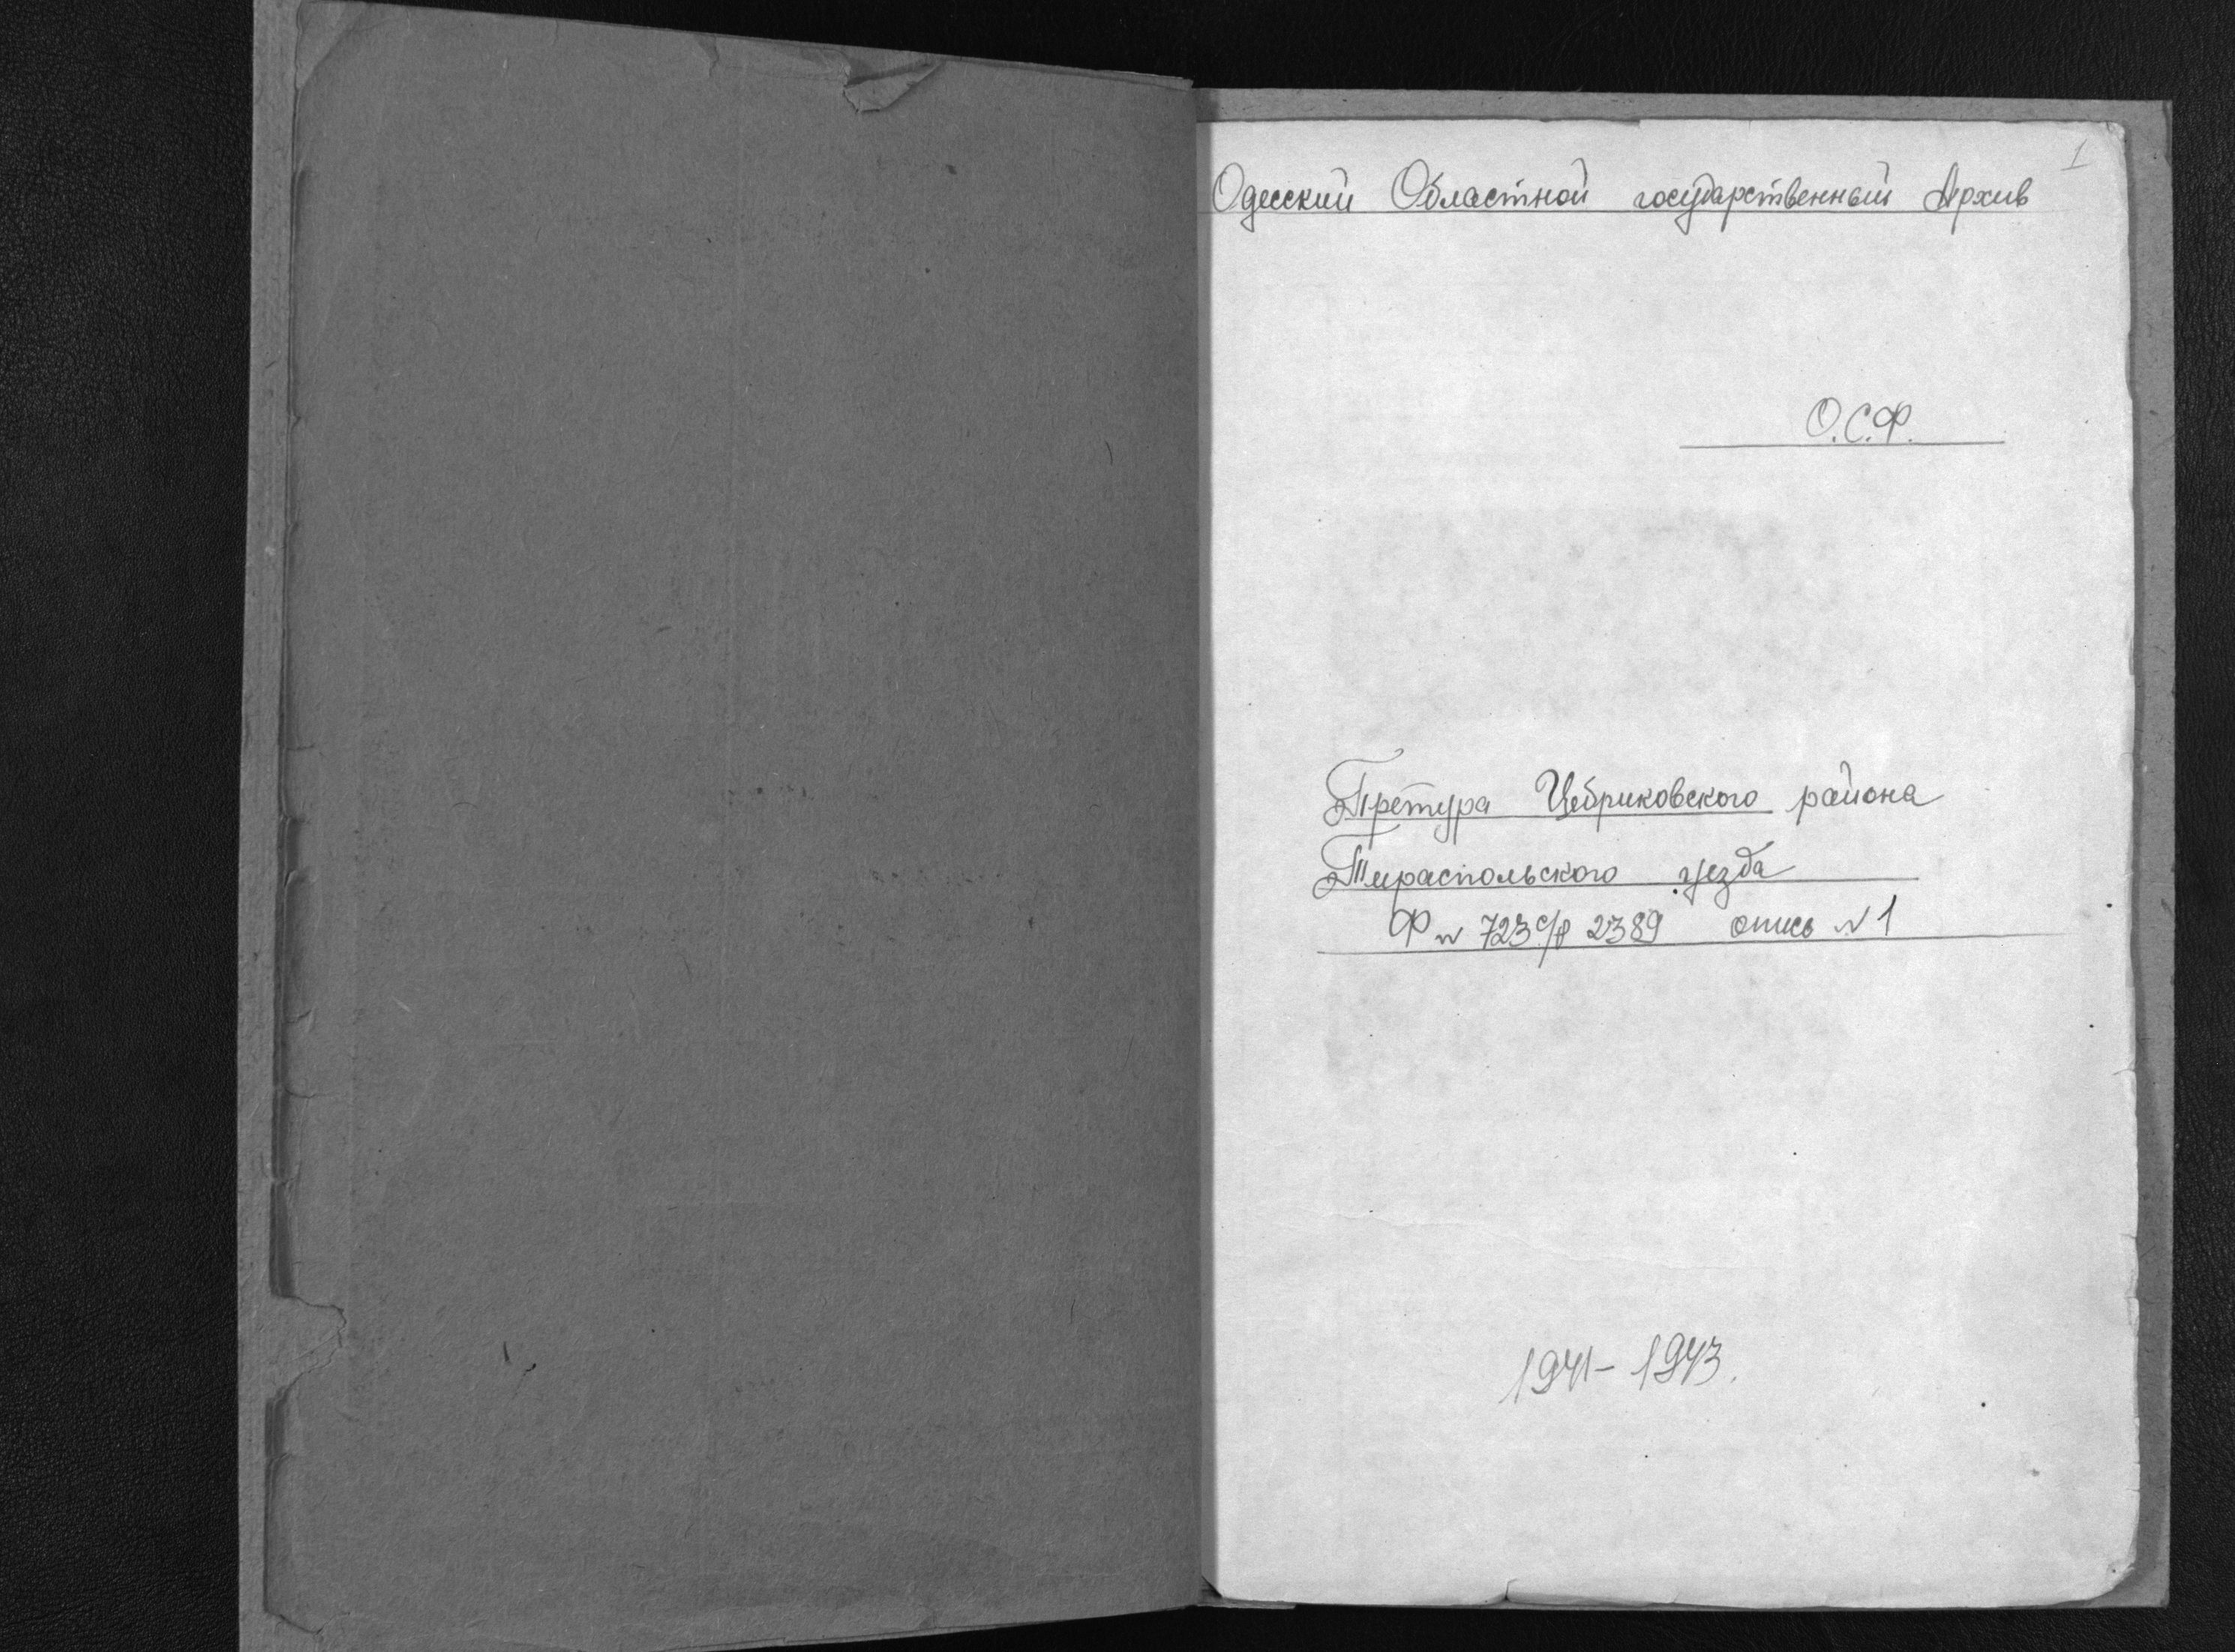 1
Одесский Областной государственный Архив
О.С.Ф.
Претура Цебриковского района
Тираспольского уезда
Ф № 723 с/р 2389 опись № 1
1941-1943.